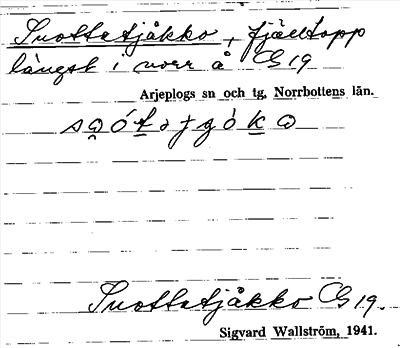 Suottatjåkko, fjälltopp
längst i norr å CG 19
Arjeplogs sn och tg, Norrbottens län.
Suottatjåkko CG 19.
Sigvard Wallström, 1941.